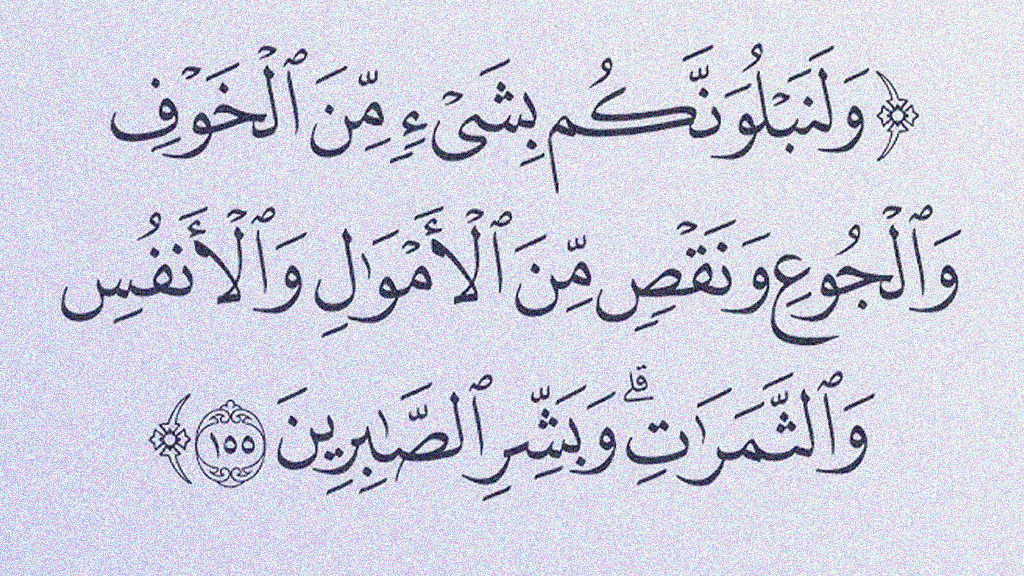 ﴿ وَلَنَبْلُوَنَّكُم بِشَىْءٍ مِّنَ ٱلْخَوْفِ
وَٱلْجُوعِ وَنَقْصٍ مِّنَ ٱلْأَمْوَٰلِ وَٱلْأَنفُسِ
وَٱلثَّمَرَٰتِ ۗ وَبَشِّرِ ٱلصَّٰبِرِينَ ١٥٥ ﴾